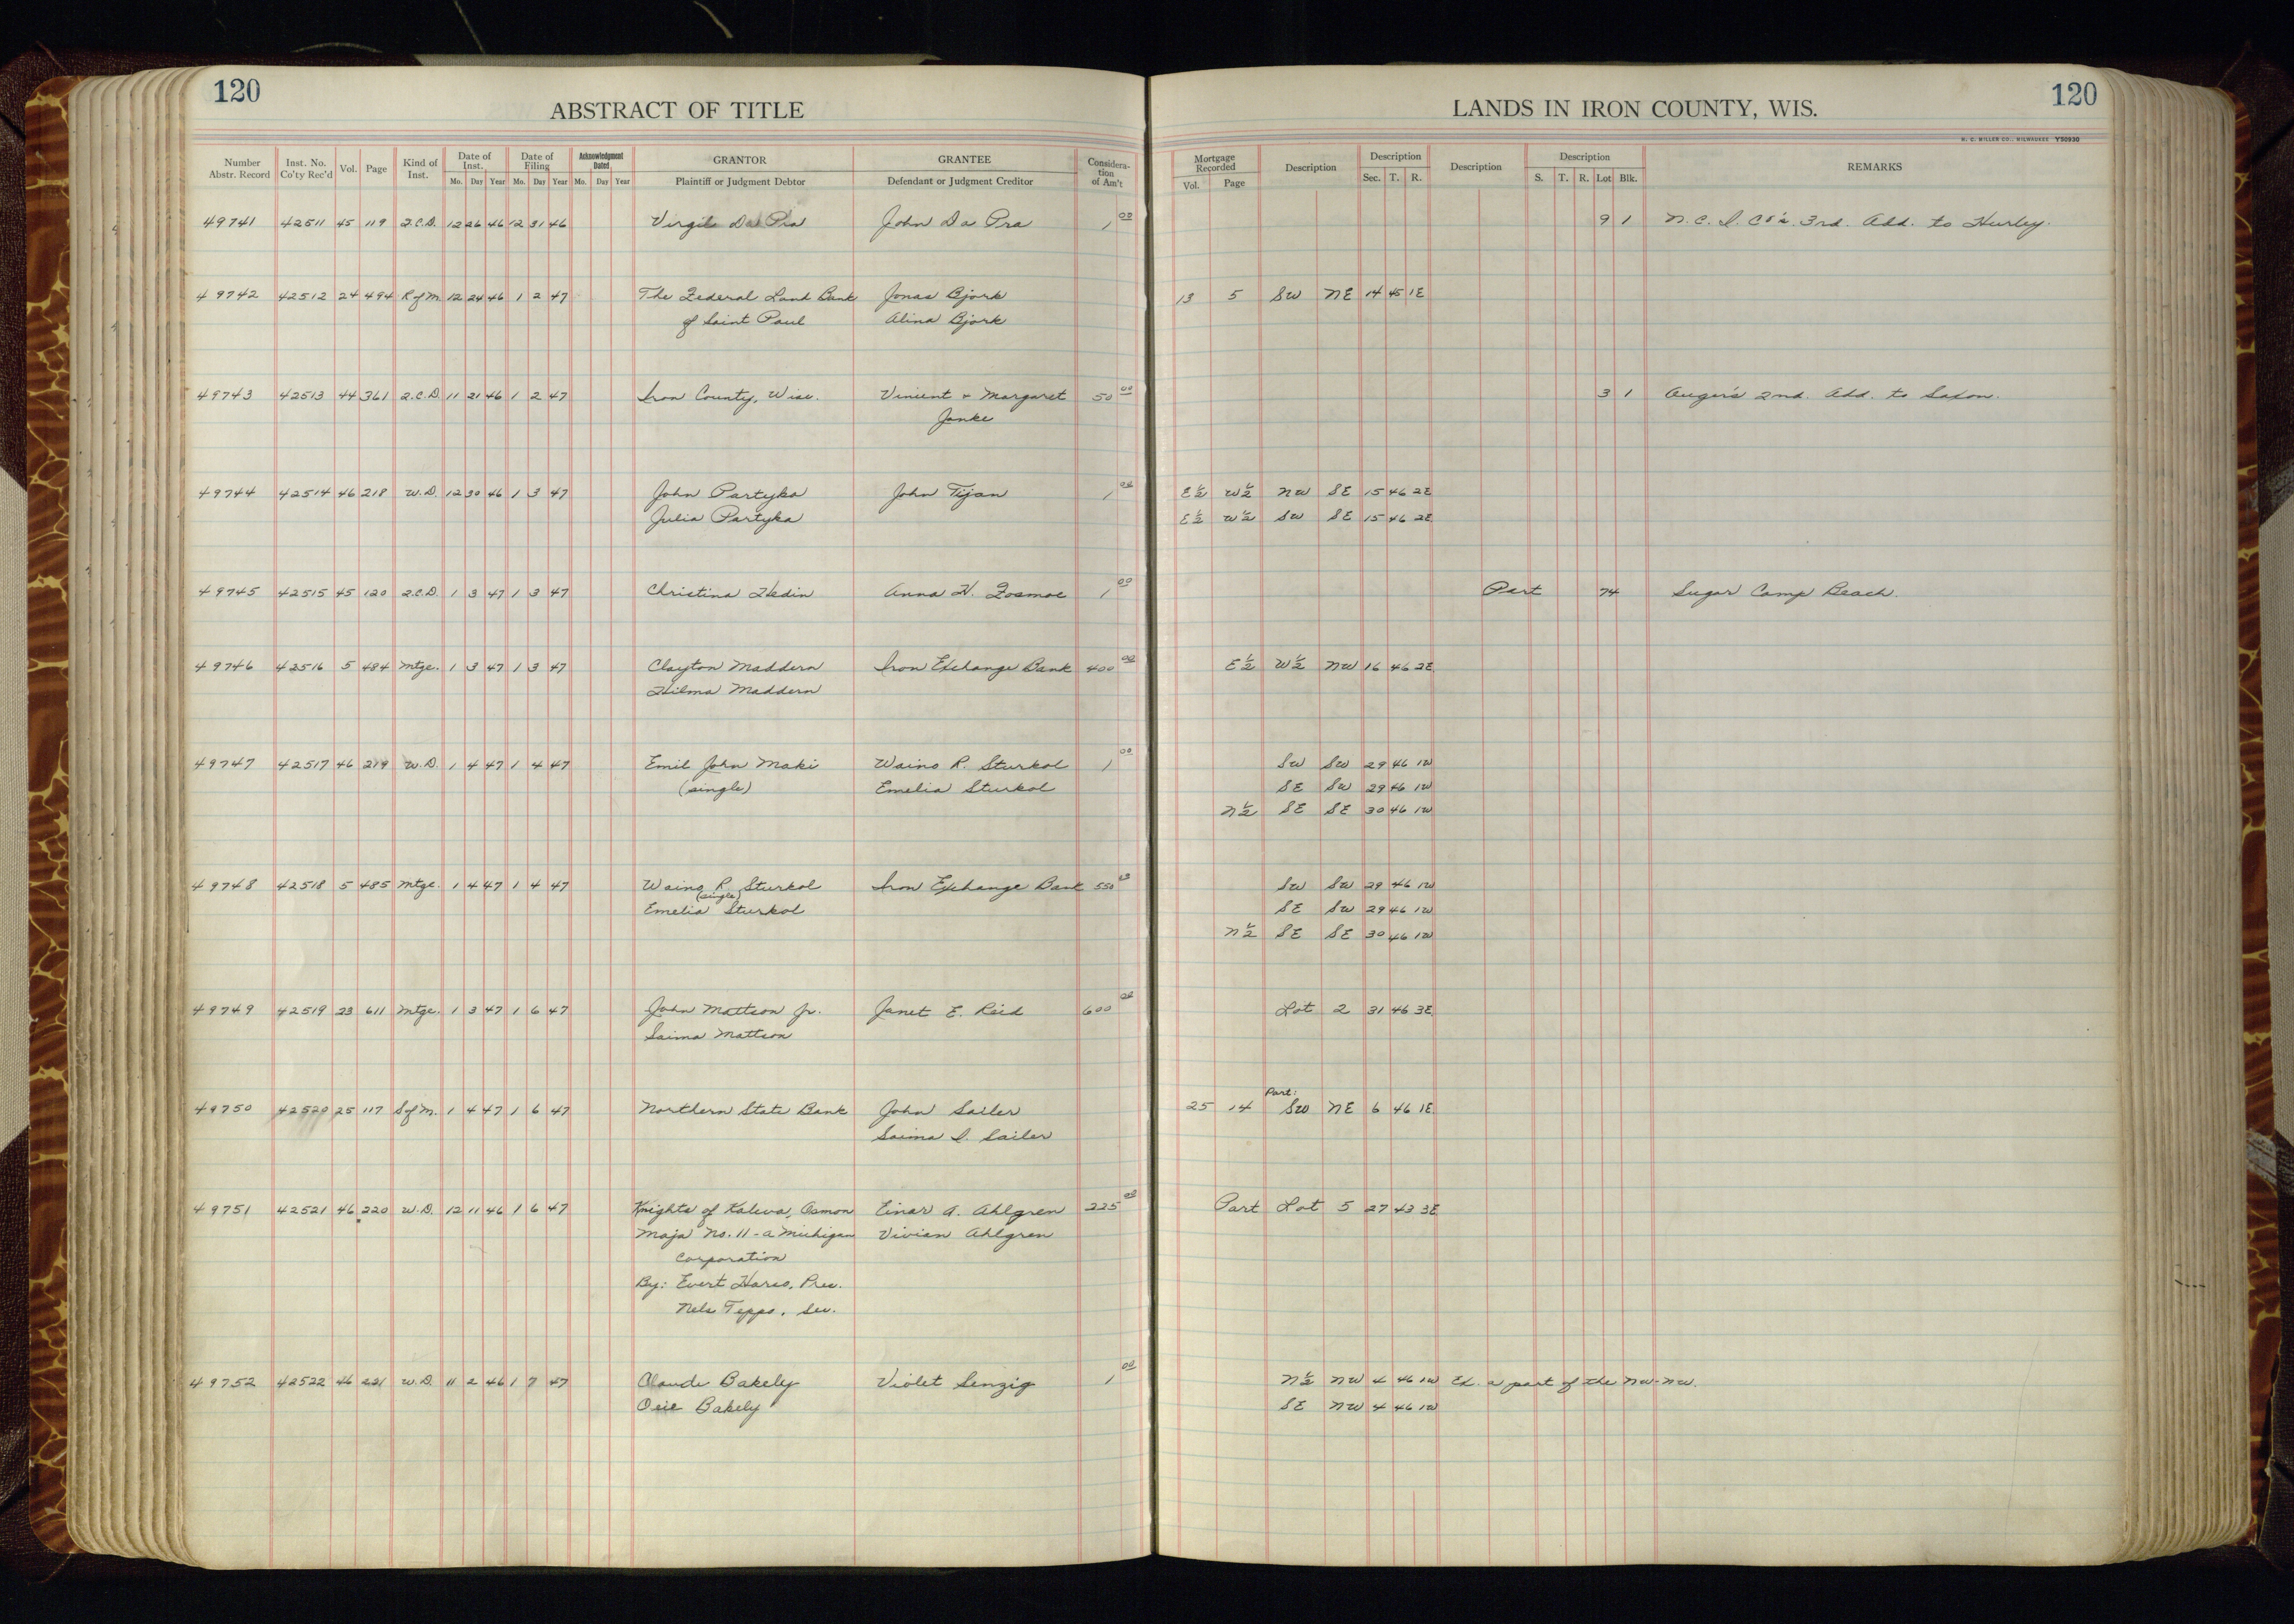 120
ABSTRACT OF TITLE
Number Abstr. Record Inst. No. Co'ty Rec'd Vol. Page Kind of Inst. Date of Inst. Mo. Day Year Date of Filing Mo. Day Year Acknowledgment Dated Mo. Day Year GRANTOR Plaintiff or Judgment Debtor GRANTEE Defendant or Judgment Creditor Considera-tion of Am't
49741 42511 45 119 Q.C.D. 12 26 46 12 31 46 Virgil Da Pra John Da Pra 1 00
49742 42512 24 494 R of M. 12 24 46 1 2 47 The Federal Land Bank Jonas Bjork
of Saint Paul Alina Bjork
49743 42513 44 361 Q.C.D. 11 21 46 1 2 47 Iron County, Wisc. Vinient + Margaret 50 00
Janke
49744 42514 46 218 W.D. 12 30 46 1 3 47 John Partyka John Tijan 1 00
Julia Partyka
49745 42515 45 120 Q.C.D. 1 3 47 1 3 47 Christina Hedin Anna H. Fosmoe 1 00
49746 42516 5 484 Mtge. 1 3 47 1 3 47 Clayton Maddern Iron Exchange Bank 400 00
Hilma Maddern
49747 42517 46 219 W.D. 1 4 47 1 4 47 Emil John Maki Waino R. Sturkol 1 00
(single) Emelia Sturkol
49748 42518 5 485 Mtge. 1 4 47 1 4 47 Waino R. Sturkol Iron Exchange Bank 550
(single)
Emelia Sturkol
49749 42519 23 611 Mtge. 1 3 47 1 6 47 John Mattson Jr. Janet E. Reid 600 00
Saima Mattson
49750 42520 25 117 S of M. 1 4 47 1 6 47 Northern State Bank John Sailer
Saima I. Sailer
49751 42521 46 220 W.D. 12 11 46 1 6 47 Knights of Kaleva, Osmon Einar A. Ahlgren 225 00
Maja No. 11 - a Michigan Vivian Ahlgren
Corporation
By: Evert Harso, Pres.
Nels Teppo, Sec.
49752 42522 46 221 W.D. 11 2 46 1 7 47 Claude Bakely Violet Senzig 1 00
Bakely
120
LANDS IN IRON COUNTY, WIS.
H. C. MILLER CO., MILWAUKEE Y50930
Mortgage Recorded Vol. Page Description Description Sec. T. R. Description Description S. T. R. Lot Blk. REMARKS
9 1 N.C.I. Co's. 3rd. Add. to Hurley.
13 5 SW NE 14 45 1E
3 1 Auger's 2nd. Add. to Saxon.
E½ W½ NW SE 15 46 2E
E½ W½ SW SE 15 46 2E
Part 74 Sugar Camp Beach.
E½ W½ NW 16 46 2E
SW SW 29 46 1W
SE SW 29 46 1W
N½ SE SE 30 46 1W
SW SW 29 46 1W
SE SW 29 46 1W
N½ SE SE 30 46 1W
Lot 2 31 46 3E
Part:
25 14 SW NE 6 46 1E
Part Lot 5 27 43 3E
N½ NW 4 46 1W Ex. a part of the NW-NW.
SE NW 4 46 1W